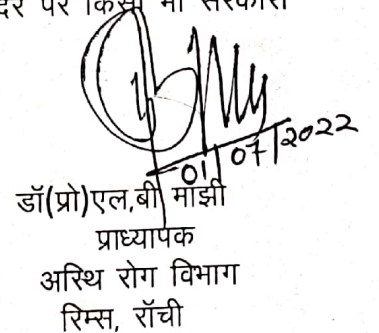 दर पर किसी भी सरकारी
01/07/2022
डॉ(प्रो)एल,बी माझी
प्राध्यापक
अस्थि रोग विभाग
रिम्स, रॉची